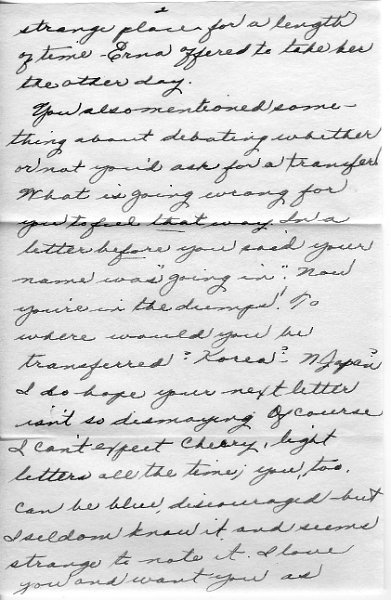 2
strange place for a length
of time - Erna offered to take her
the other day.
You also mentioned some-
thing about debating whether
or not you'd ask for a transfer.
What is going wrong for
you to feel that way. In a
letter before you said your
name was "going in". Now
you're in the dumps! To
where would you be
transferred? Korea? - N. Japan
I do hope your next letter
isn't so dismaying. Of course
I can't expect cherry, light
letters all the time; you, too,
can be blue, discouraged - but
I seldom know it and seems
strange to note it. I love
you and want you as